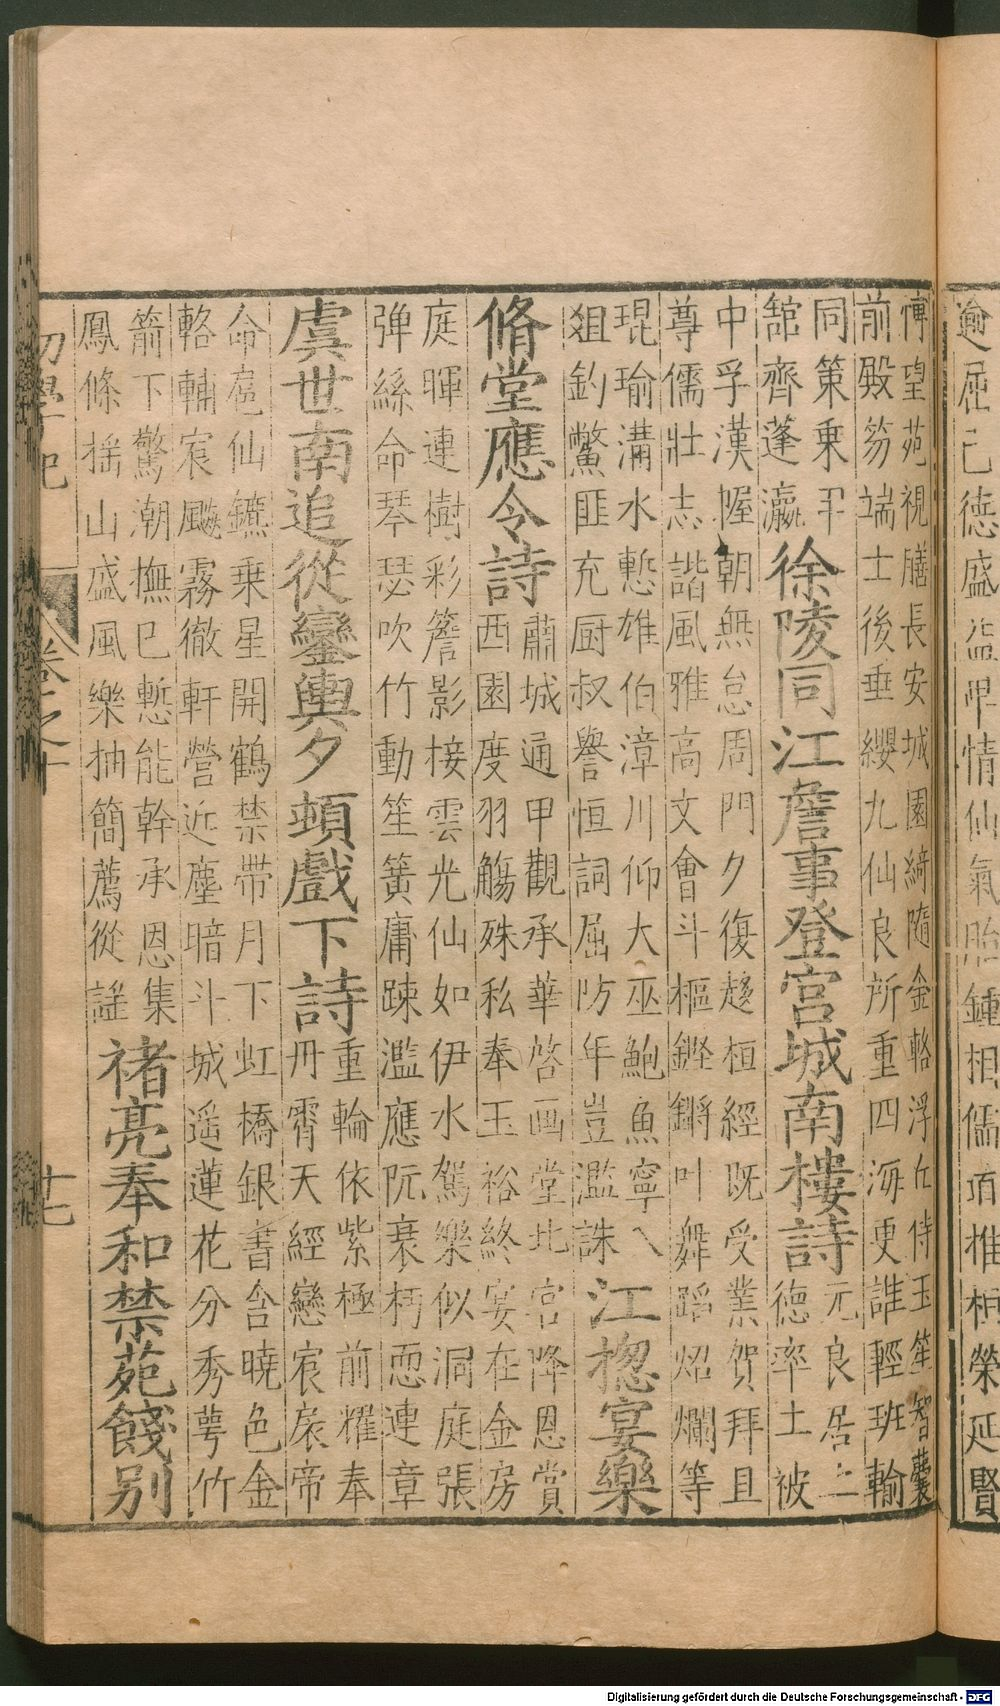 逾屈已德盛益甲情仙氣貽鍾相儒項推桓榮延賢
博望苑視膳長安城園綺隨金輅浮丘侍玉笙智囊
前殿笏端士後垂纓九仙良所重四海更誰輕班輸
同策乗羊
舘齊蓬瀛
徐陵同江詹事登宫城南樓詩
元良居上
德率土被
中孚漢幄朝無怠周門夕復趍桓經既受業賀拜且
尊儒壯志諧風雅高文會斗樞鏗鏘叶舞蹈炤爛等
琨瑜溝水慙雄伯漳川仰大巫鮑魚寧入
爼釣鱉匪充厨叔譽恒詞屈防年豈濫誅
江揔宴樂
脩堂應令詩
肅城通甲觀承華啓画堂北宫降恩賞
西園度羽觴殊私奉玉裕終宴在金房
庭暉連樹彩簷影接雲光仙如伊水駕樂似洞庭張
弹絲命琴瑟吹竹動笙簧庸踈濫應阮衰朽恧連章
虞世南追從鑾輿夕頓戲下詩
重輪依紫極前耀奉
丹霄天經戀宸扆帝
命扈仙鑣乗星開鶴禁帶月下虹橋銀書含曉色金
輅輔宸飈霧徹軒營近塵暗斗城遥蓮花分秀萼竹
箭下驚潮撫已慙能幹承恩集
鳳條摇山盛風樂抽簡薦從謡
褚亮奉和禁苑餞别
初學記 卷之十 廿七
Digitalisierung gefördert durch die Deutsche Forschungsgemeinschaft - DFG